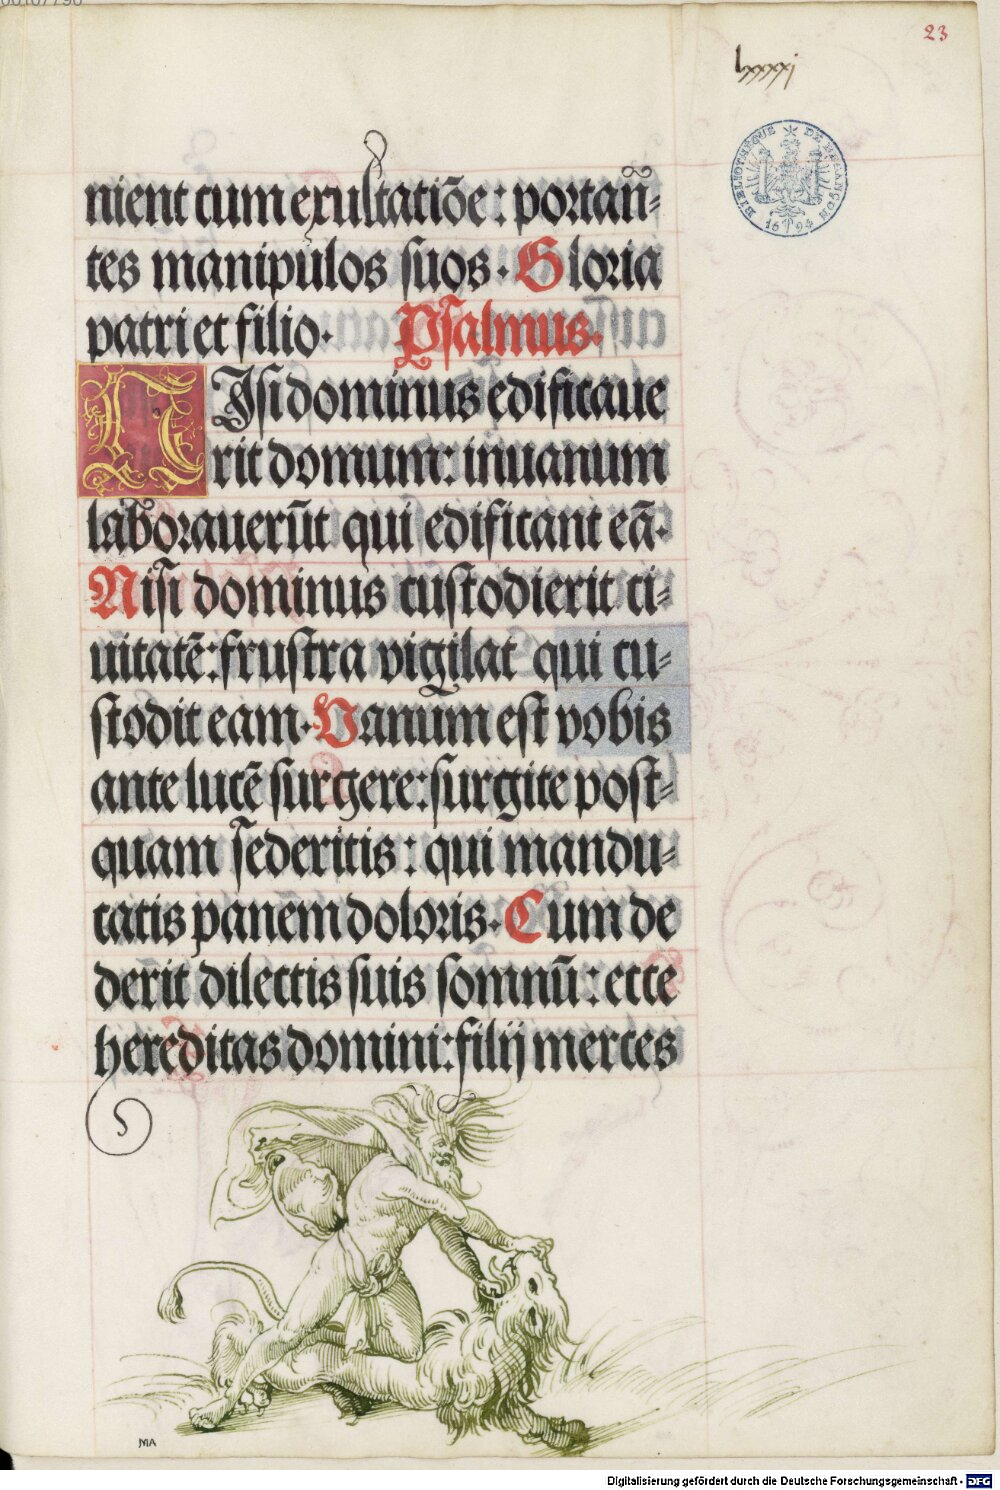 00107790
23
lxxxxi
BIBLIOTHÈQUE DE BESANÇON
1694
nient cum exultatiõe: portañ⸗
tes manipulos suos. Gloria
patri et filio. Psalmus.
NIsi dominus edificaue
rit domum: inuanum
laborauerūt qui edificant eā.
Nisi dominus custodierit ci⸗
uitatē: frustra vigilat qui cu⸗
stodit eam. Vanum est vobis
ante lucē surgere: surgite post⸗
quam sederitis: qui mandu⸗
catis panem doloris. Cum de
derit dilectis suis somnū: ecce
hereditas domini: filij merces
MA
Digitalisierung gefördert durch die Deutsche Forschungsgemeinschaft - DFG